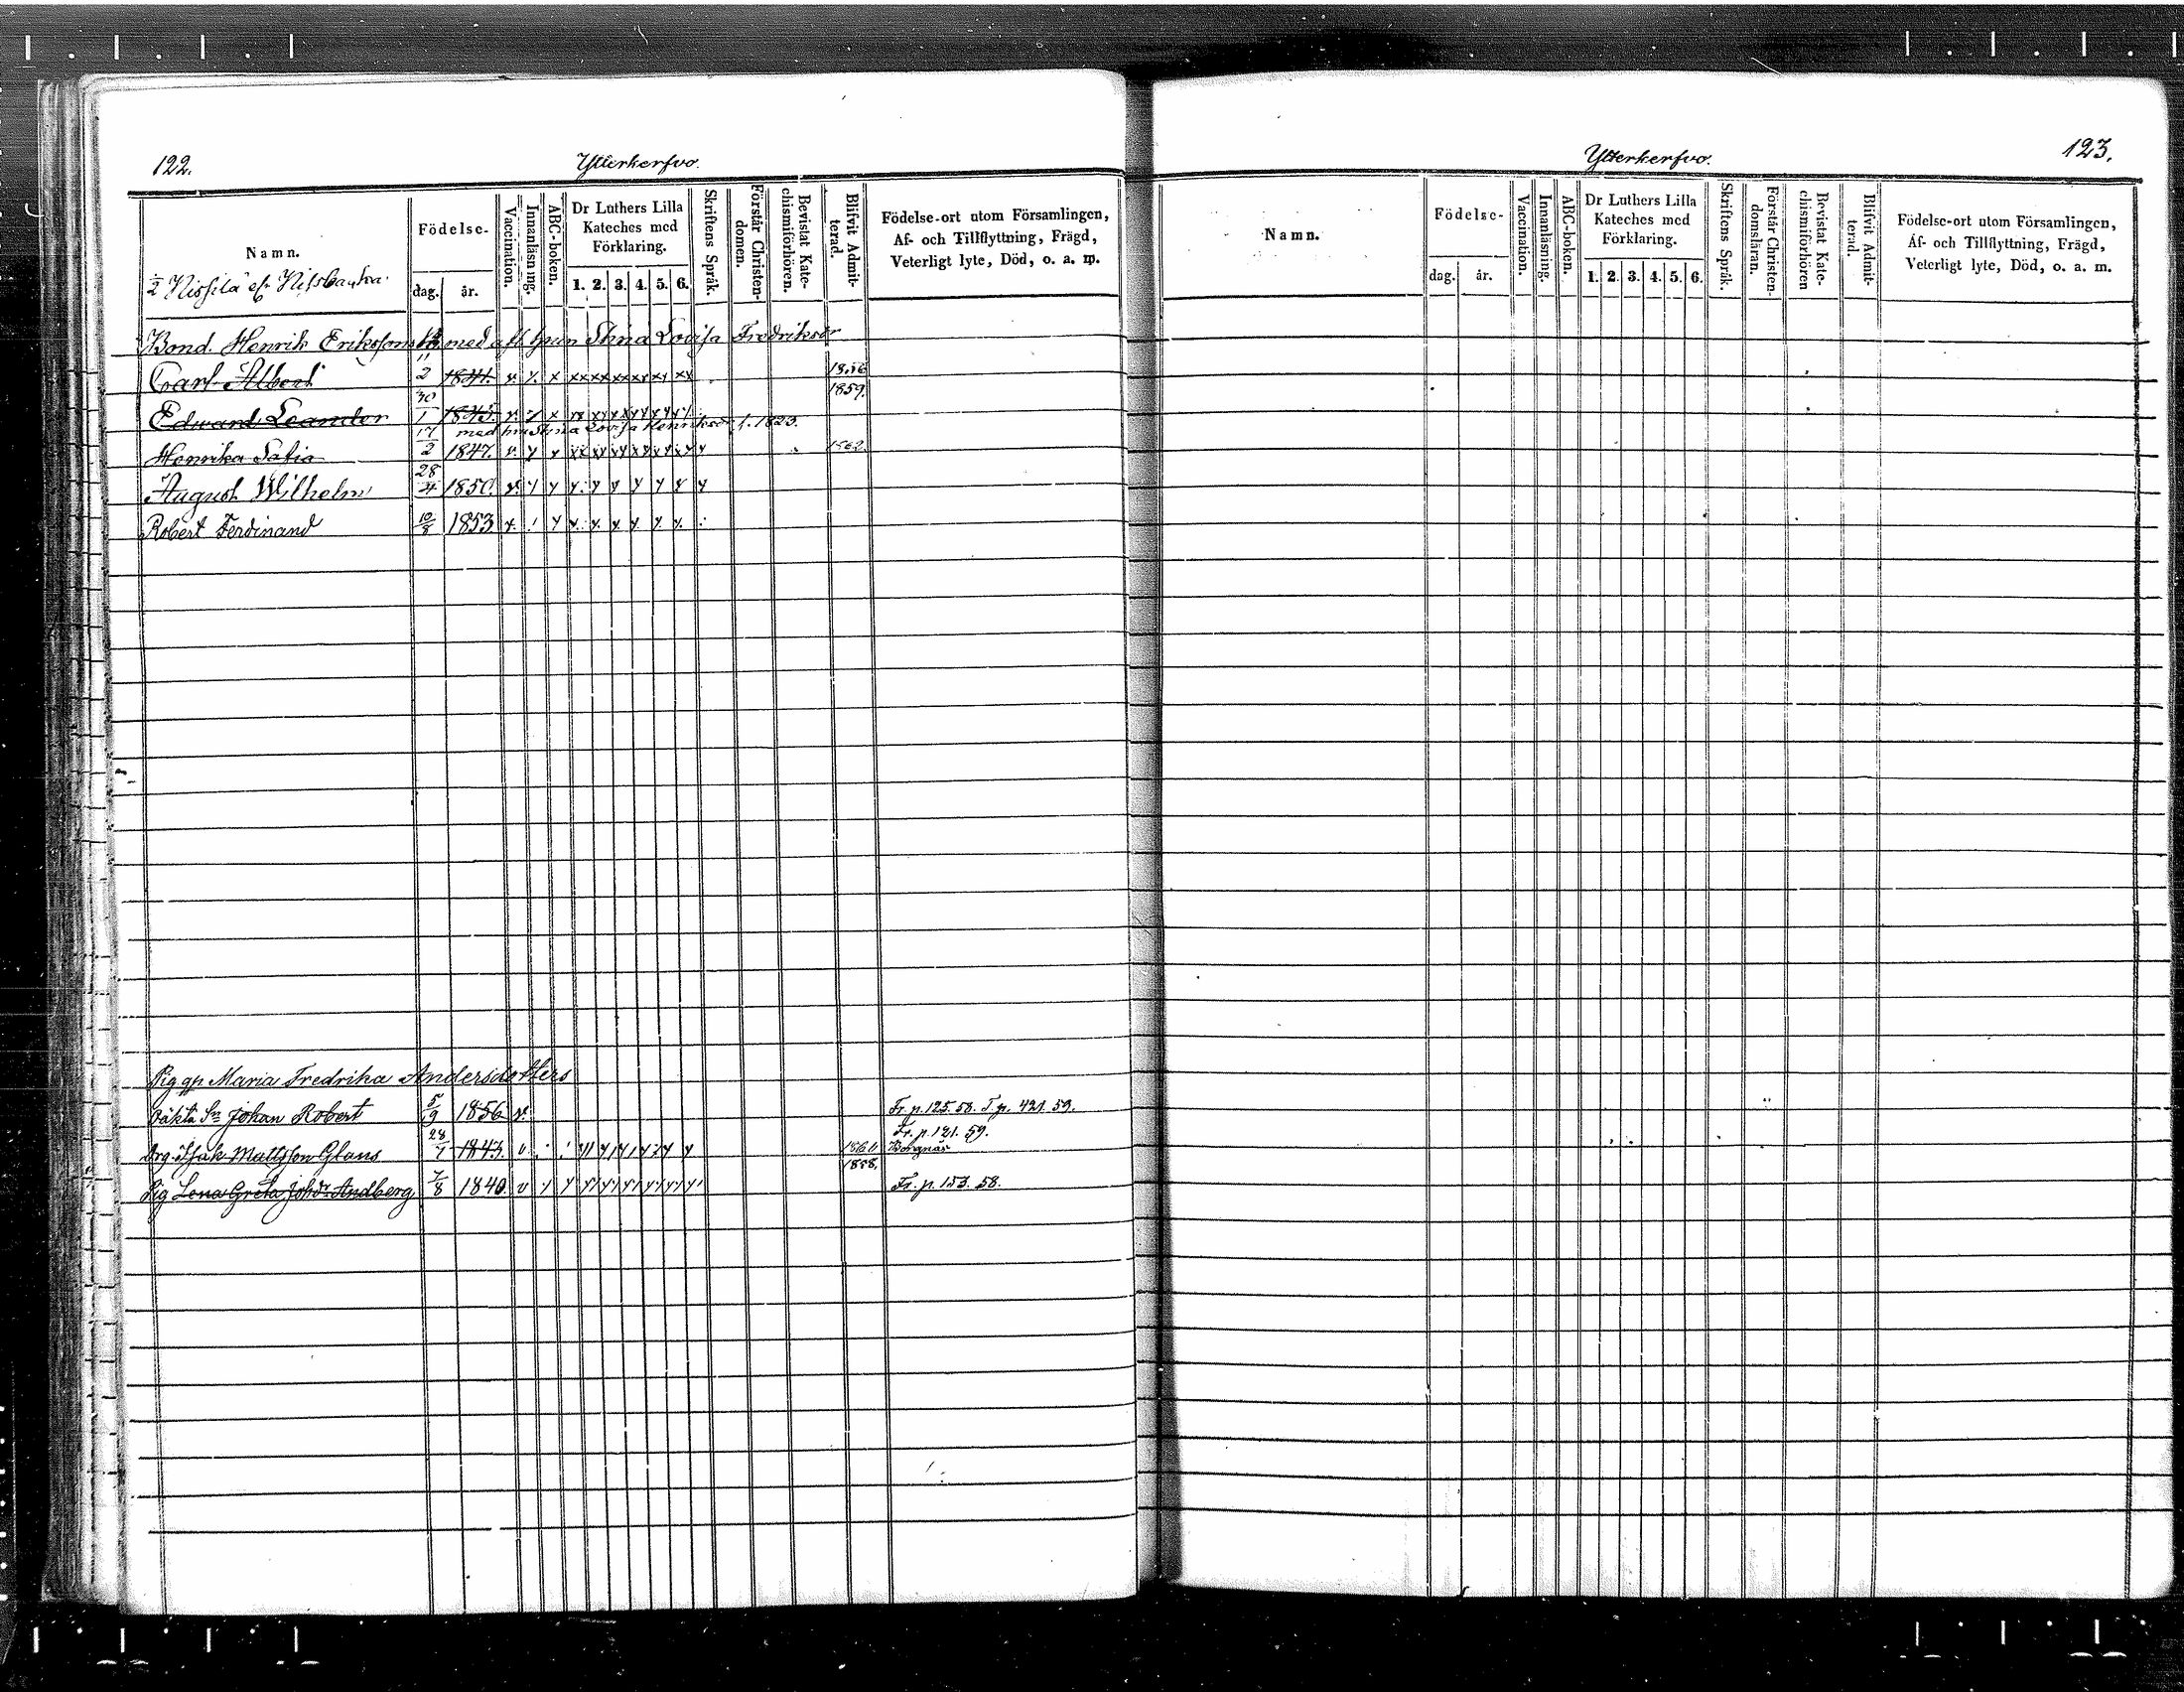 122.
Ytterkerfvo.
Namn.
Födelse-
dag.
år.
Vaccination.
Innanläsning.
ABC-boken.
Dr Luthers Lilla
Kateches med
Förklaring.
1. 2. 3. 4. 5. 6.
Skriftens Språk.
Förstår Christen-
domen.
Bevistat Kate-
chismiförhören.
Blifvit Admit-
terad.
Födelse-ort utom Församlingen,
Af- och Tillflyttning, Frägd,
Veterligt lyte, Död, o. a. m.
Bond. Henrik Erikssons med afl. Stina Lovisa Fredriksdr
Carl Albert 11/2 1841. 1856
Edward Leander 30/1 1845. 1859.
med hu Stina Lovisa Henriksdr f. 1823.
Henrika Safia 17/2 1847. 1862.
August Wilhelm 28/4 1850.
Robert Ferdinand 10/8 1853
Pig Maria Fredrika Andersdotters
oäkta Sn Johan Robert 5/9 1856 v. Fr. p. 125. 58. T. p. 421. 59.
Fr. p. 121. 59.
Drg. Isak Mattsson Glans 28/1 1843. v
1858.
Pig Lena Greta Johdr Andberg 7/8 1840. v Fr. p. 153. 58.
Ytterkerfvo.
123.
Namn.
Födelse-
dag.
år.
Vaccination.
Innanläsning.
ABC-boken.
Dr Luthers Lilla
Kateches med
Förklaring.
1. 2. 3. 4. 5. 6.
Skriftens Språk.
Förstår Christen-
domsläran.
Bevistat Kate-
chismiförhören
Blifvit Admit-
terad.
Födelse-ort utom Församlingen,
Af- och Tillflyttning, Frägd,
Veterligt lyte, Död, o. a. m.